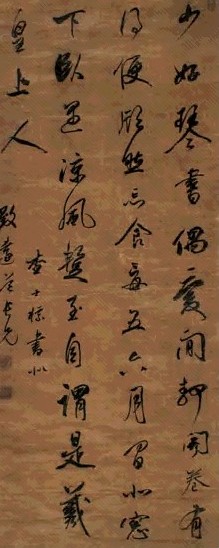 少好琴書偶愛閒靜開卷有
得便欣然忘食每五六月間北窗
下臥遇涼風暫至自謂是羲
皇上人
查士標書似
致遠老年兄